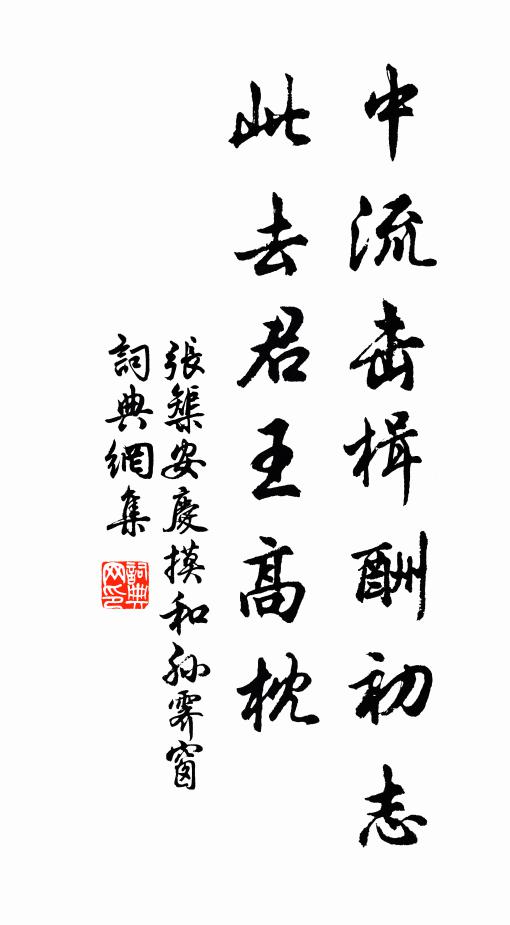 中流击楫酬初志
此去君王高枕
張榘安慶摸和孙霁窗
詞典網集
詞典
网印